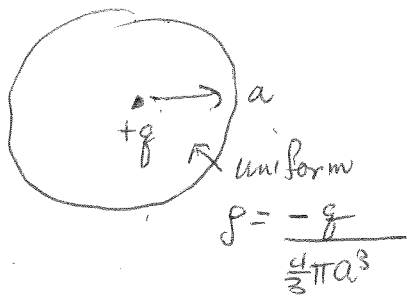 a
+q
uniform
ρ = -q
4/3 πa³